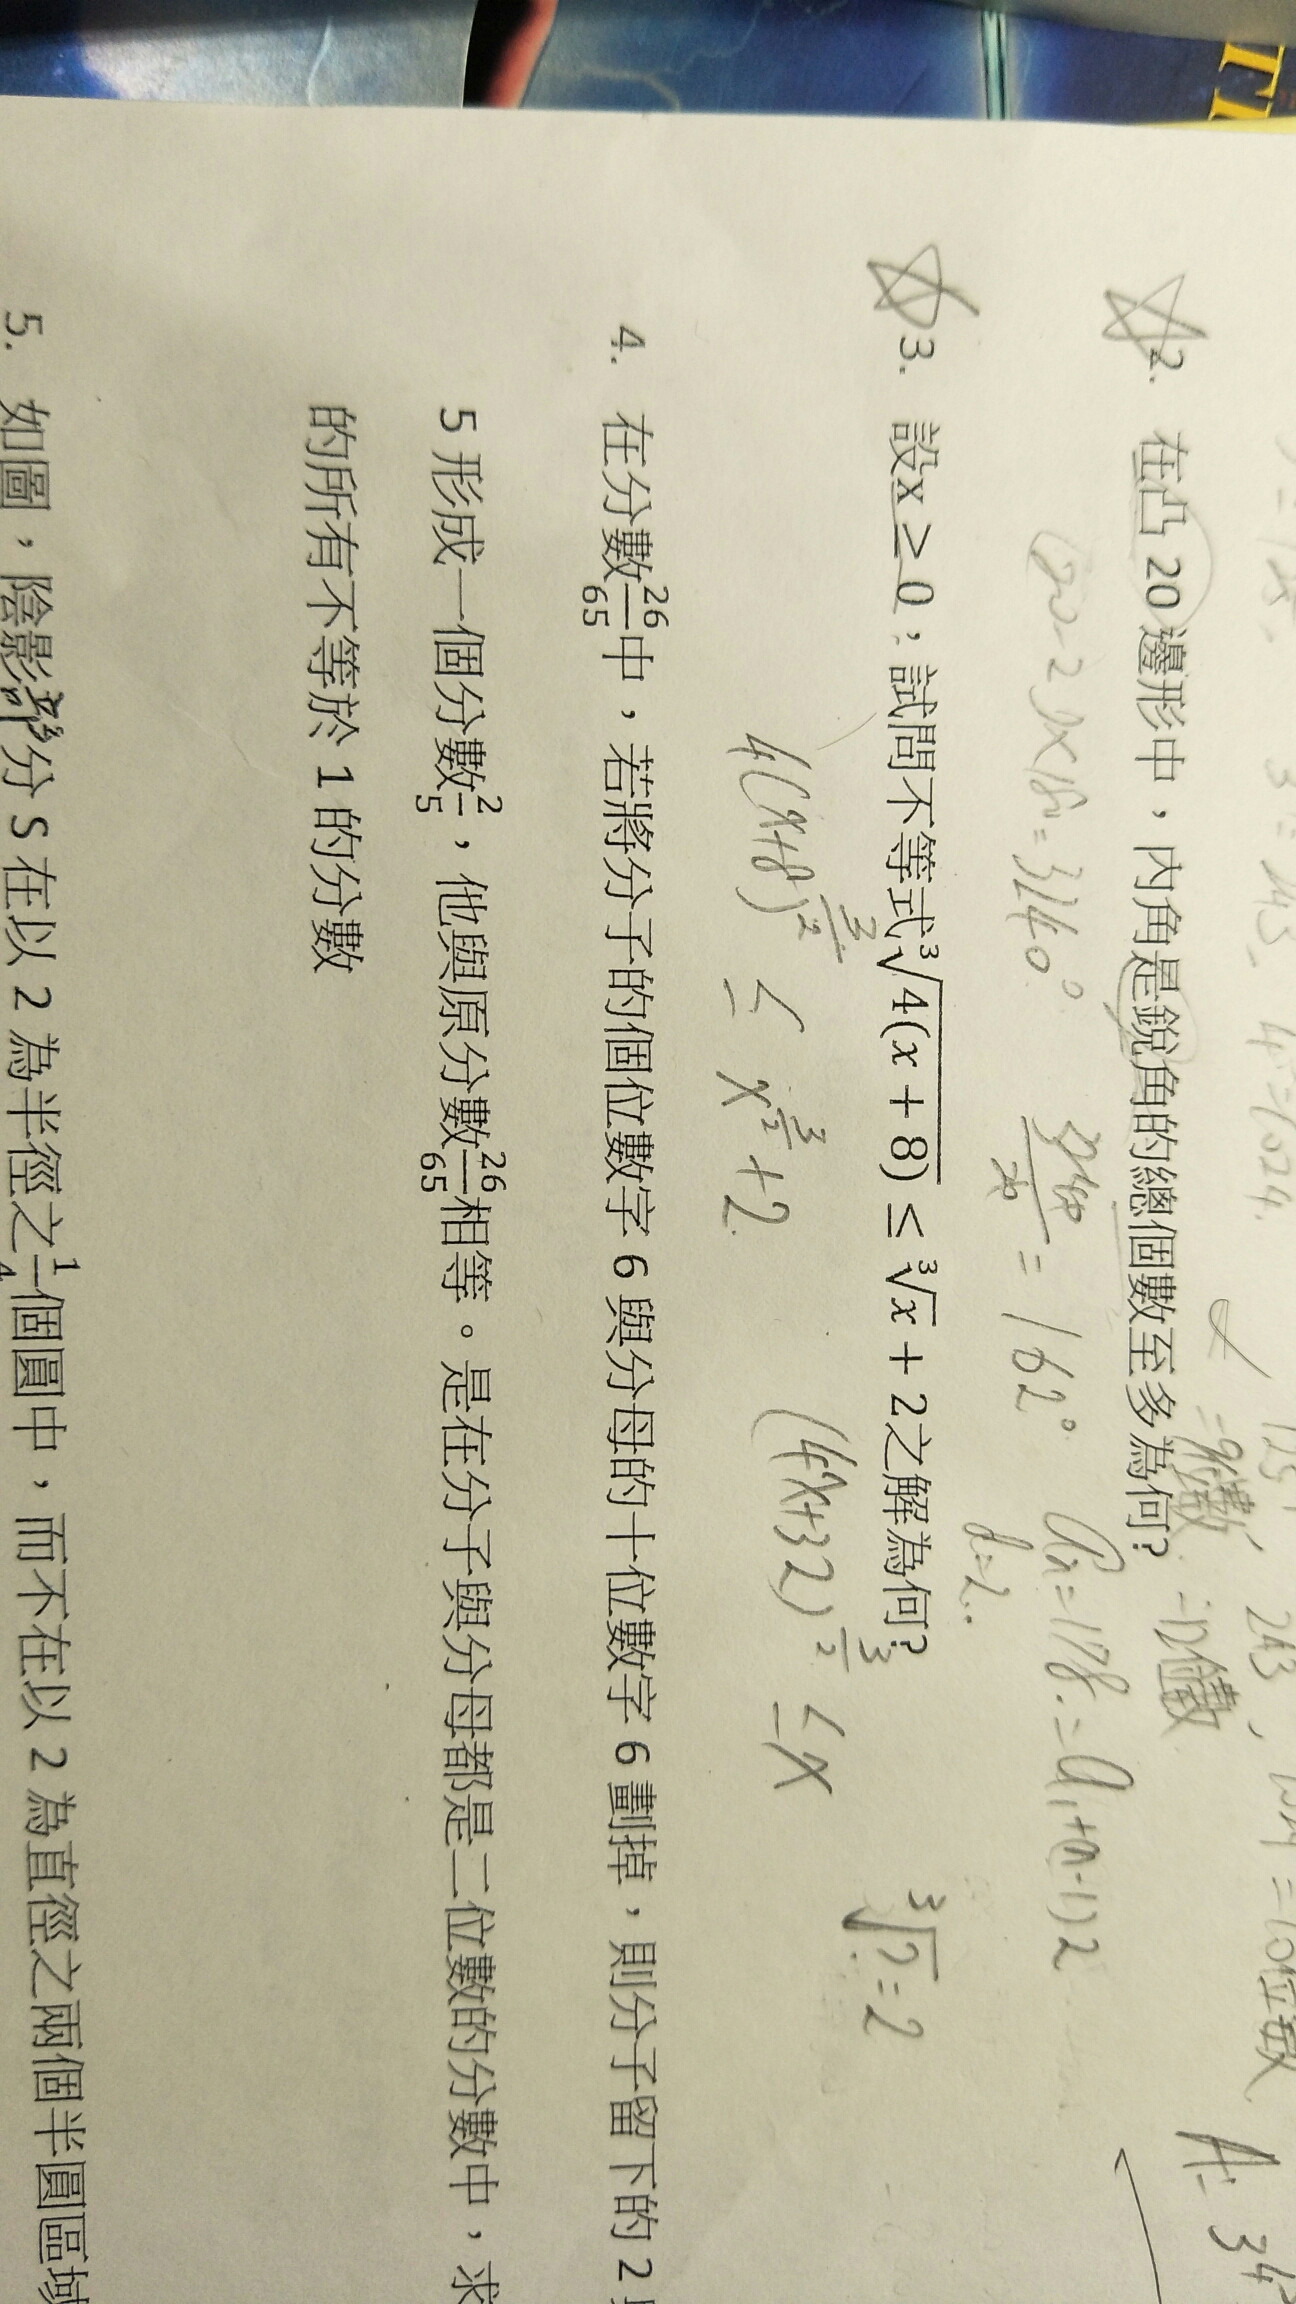 TI
3 = 243, 4⁵=1024.
125, 243, =10位數
=9位數, =10位數
2. 在凸 20 邊形中，內角是銳角的總個數至多為何?
(20-2)×180=3240°. 3240/20 = 162° an=178.=a₁+(n-1)2
d=2..
3. 設x ≥ 0；試問不等式∛(4(x + 8)) ≤ ∛x + 2之解為何?
∛?=2
4(x+8)^(3/2) ≤ x^(3/2)+2. (4x+32)^(3/2) ≤x
4. 在分數26/65中，若將分子的個位數字 6 與分母的十位數字 6 劃掉，則分子留下的 2
5 形成一個分數2/5，他與原分數26/65相等。是在分子與分母都是二位數的分數中，求
的所有不等於 1 的分數
5. 如圖，陰影部分 S 在以 2 為半徑之1/4個圓中，而不在以 2 為直徑之兩個半圓區域